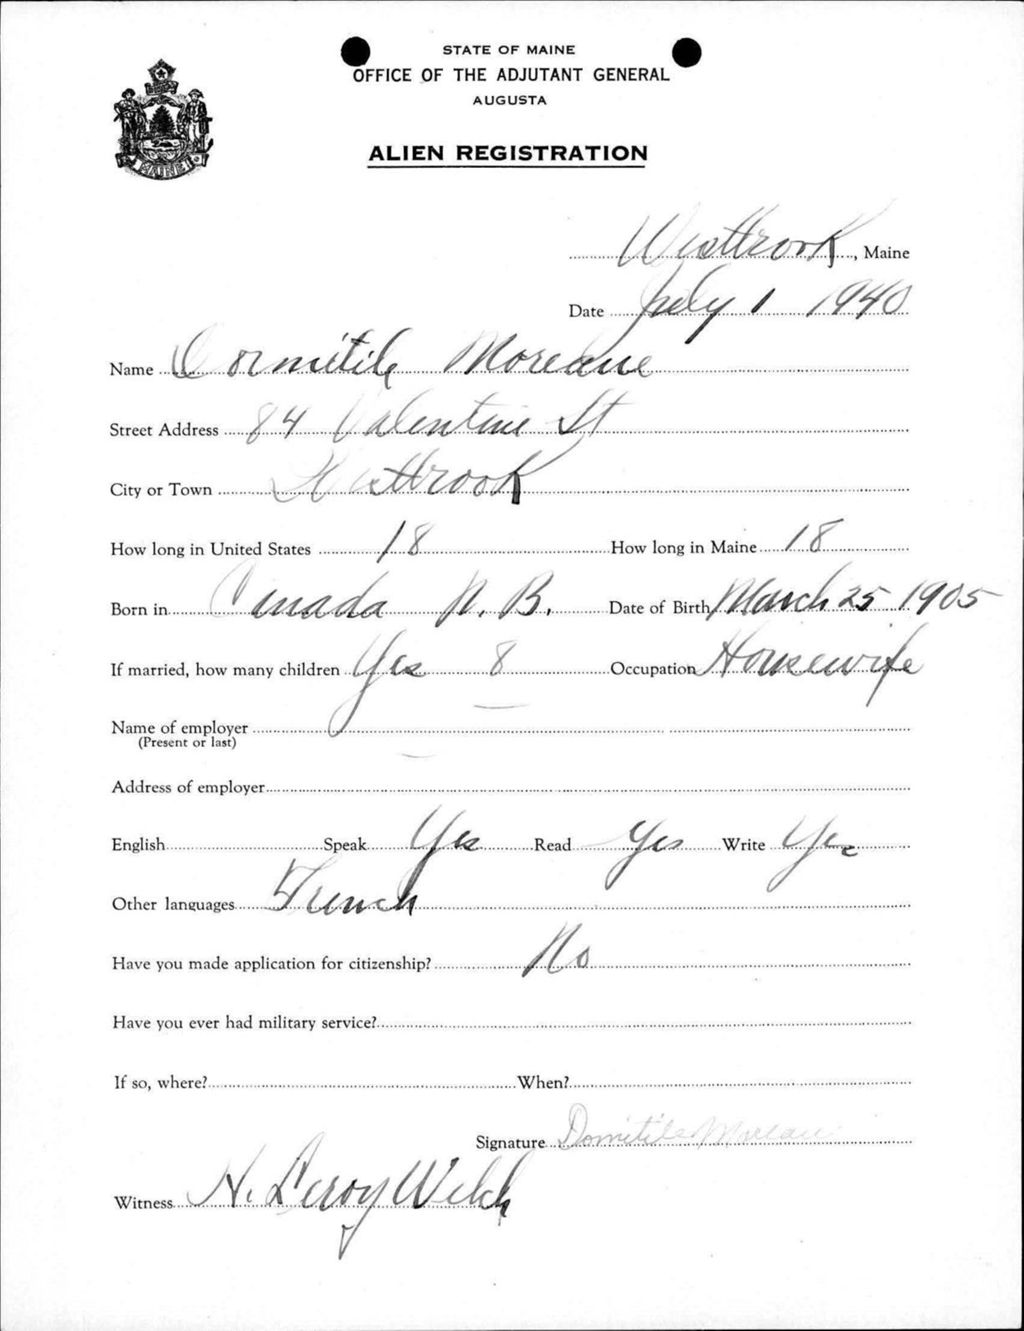 STATE OF MAINE
OFFICE OF THE ADJUTANT GENERAL
AUGUSTA
ALIEN REGISTRATION
MAINE
Westbrook, Maine
Date July 1 1940
Name Dormitile Moreaue
Street Address 84 Valentine St
City or Town Westbrook
How long in United States 18 How long in Maine 18
Born in Canada N. B. Date of Birth March 25 1905
If married, how many children Yes 8 Occupation Housewife
Name of employer —
(Present or last)
Address of employer —
English Speak Yes Read Yes Write Yes
Other languages French
Have you made application for citizenship? No
Have you ever had military service?
If so, where? When?
Signature Domitile Moreau
Witness H. Leroy Welch